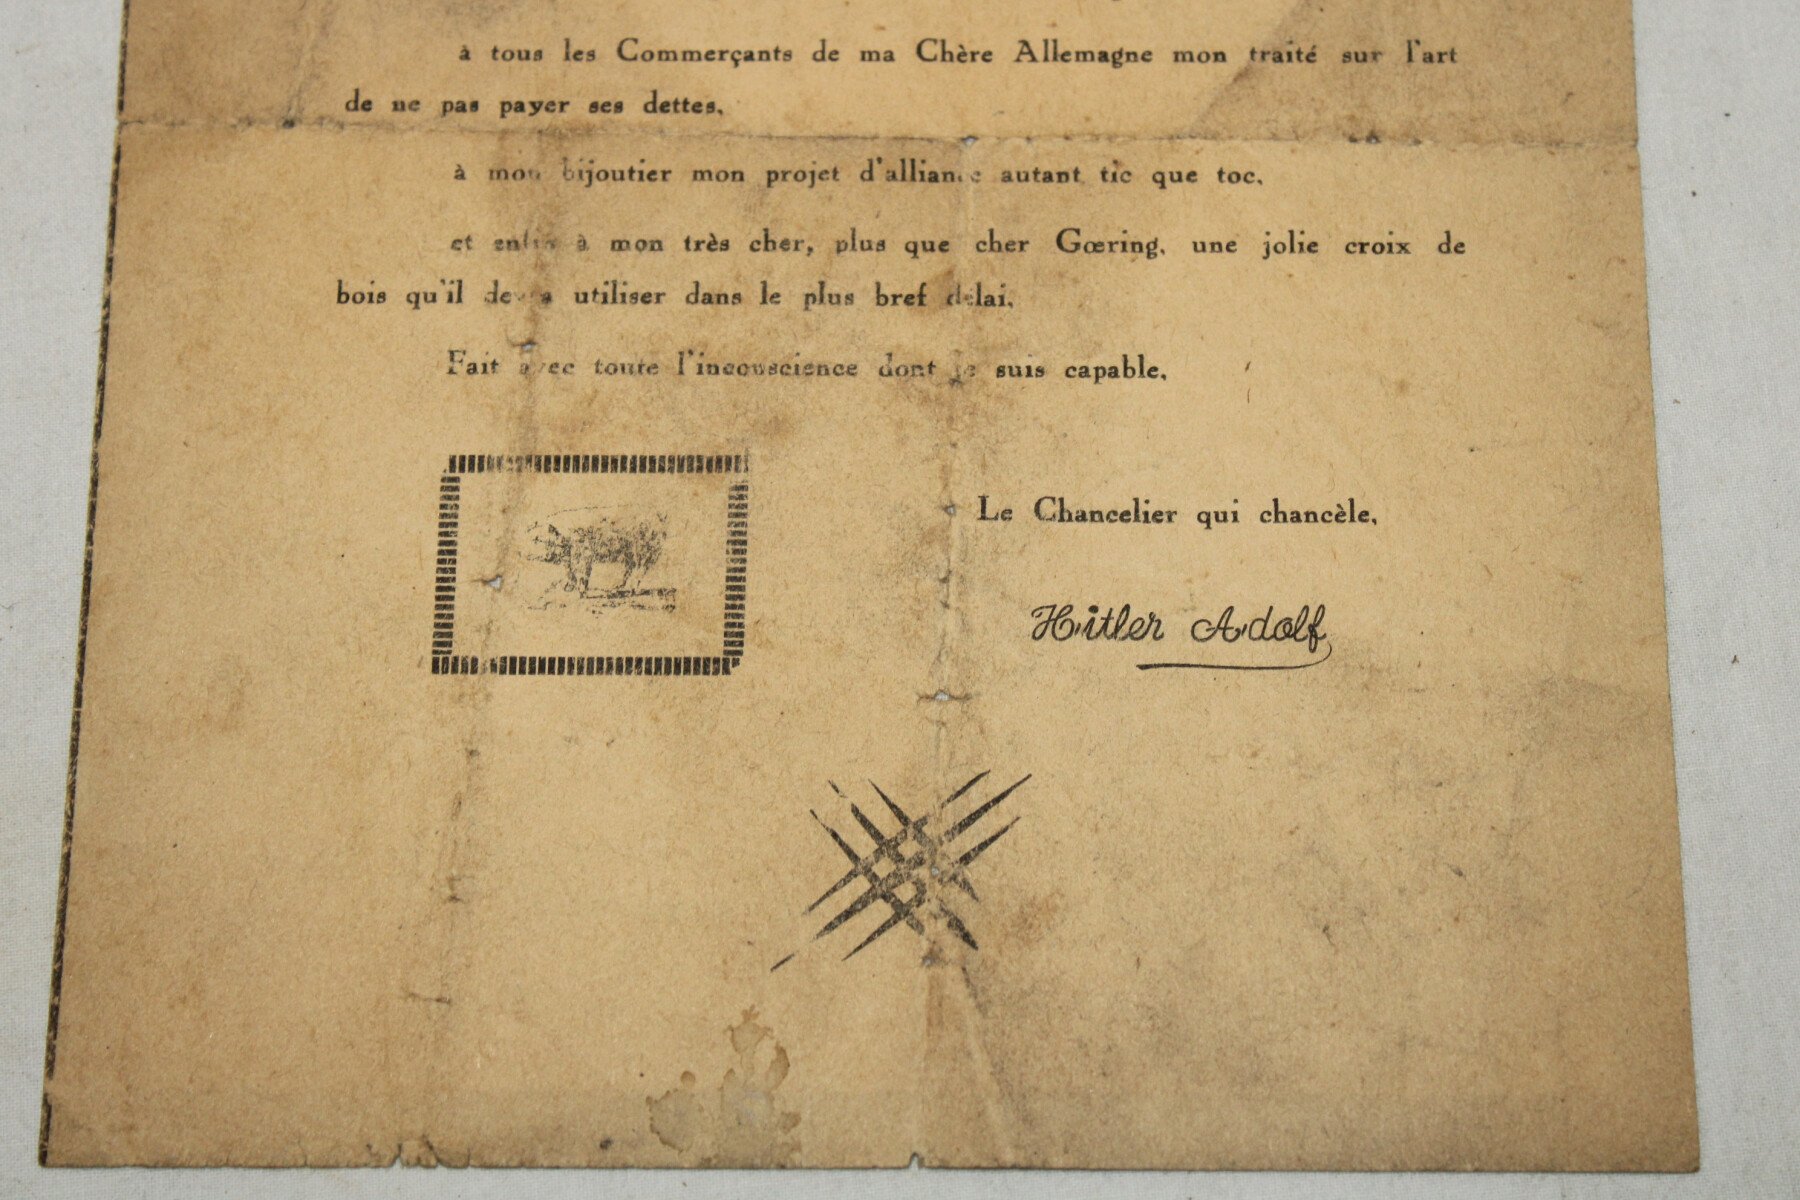 à tous les Commerçants de ma Chère Allemagne mon traité sur l'art
de ne pas payer ses dettes,
à mon bijoutier mon projet d'alliance autant tic que toc,
et enfin à mon très cher, plus que cher Gœring, une jolie croix de
bois qu'il devra utiliser dans le plus bref délai,
Fait avec toute l'inconscience dont je suis capable,
Le Chancelier qui chancèle,
Hitler Adolf